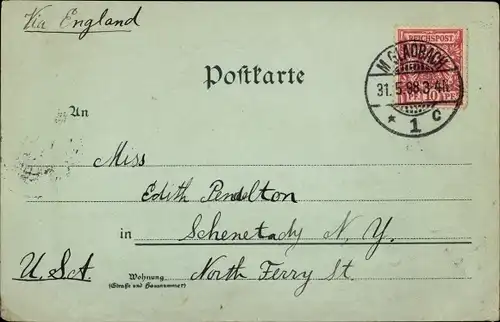 Via England
REICHSPOST
M. GLADBACH
31.5.98.3-4N.
* 1 c
10 PF
Postkarte
An
Miss
Edith Pendelton
in Schenetady N. Y.
U.S.A. Wohnung North Ferry St.
(Straße und Hausnummer)